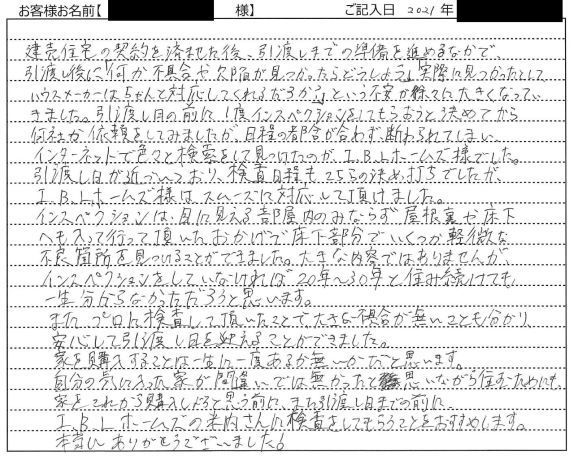 お客様お名前【 様】 ご記入日 2021年
建売住宅の契約を済ませた後、引渡しまでの準備を進めるなかで、
引渡し後に「何か不具合や欠陥が見つかったらどうしよう」「実際に見つかったとして
ハウスメーカーはちゃんと対応してくれるだろうか」という不安が徐々に大きくなってい
きました。引渡し日の前に1度インスペクションをしてもらおうと決めてから
何社か依頼をしてみましたが、日程の都合が合わず、断わられてしまい、
インターネットで色々と検索をして見つけたのが、I.B.Lホームズ様でした。
引渡し日が近づいており、検査日程もこちらの決め打ちでしたが、
I.B.Lホームズ様はスムーズに対応して頂けました。
インスペクションは、目に見える部屋内のみならず屋根裏や床下
へも入って行って頂いたおかげで床下部分でいくつか軽微な
不良箇所を見つけることができました。大きな内容ではありませんが、
インスペクションをしていなければ20年〜30年と住み続けても
一生分からなかっただろうと思います。
また、プロに検査して頂いたことで大きな不具合が無いことも分かり、
安心して引渡し日を迎えることができました。
家を購入することは一生に一度あるか無いかだと思います。
自分の気に入った家が間違いでは無かったと思いながら住むためにも、
家をこれから購入しようと思う前に、また引渡し日までの前に、
I.B.Lホームズの米内さんに検査をしてもらうことをおすすめします。
本当にありがとうございました。